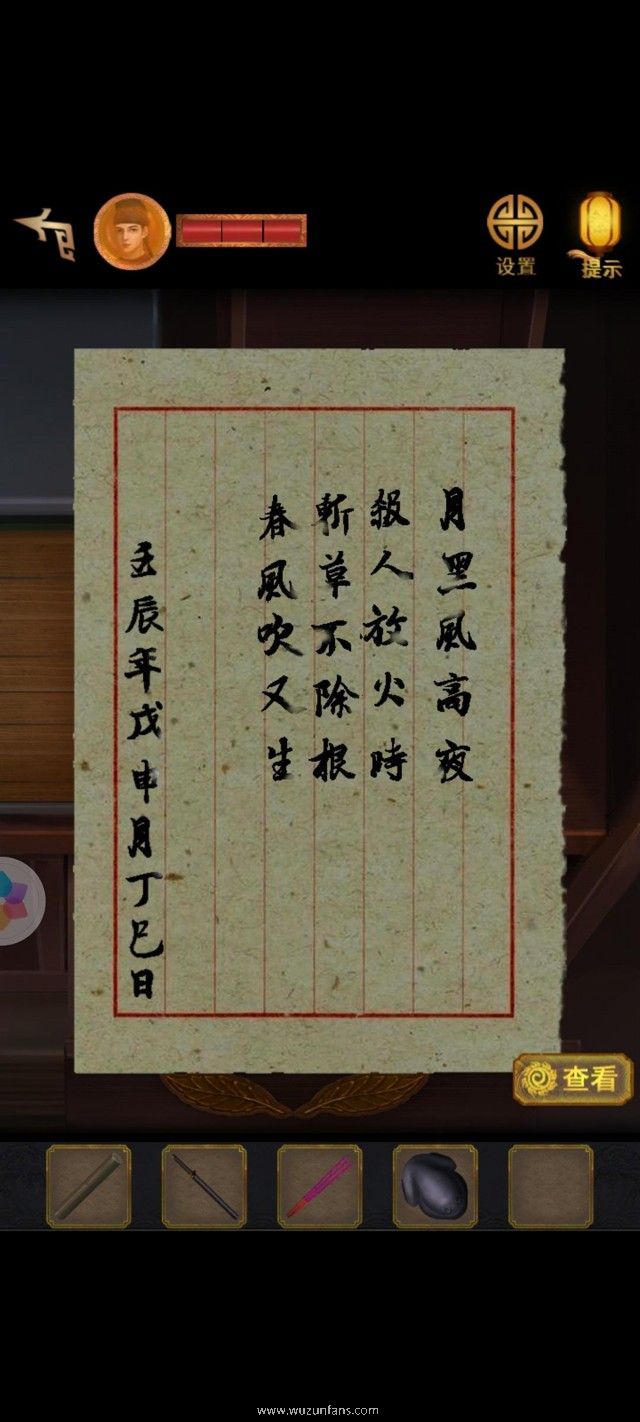 设置
提示
月黑風高夜
殺人放火時
斬草不除根
春風吹又生
壬辰年戊申月丁巳日
查看
www.wuzunfans.com